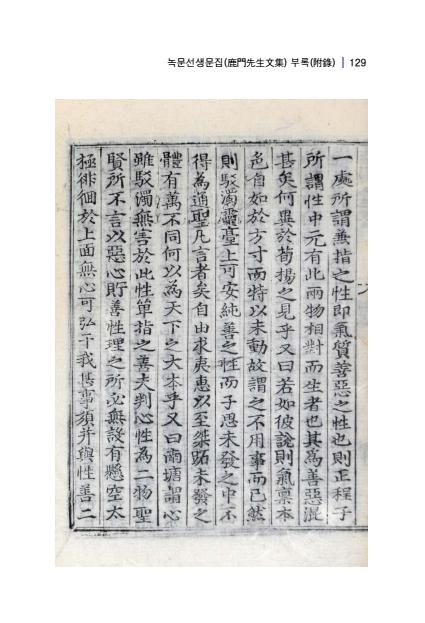 녹문선생문집(鹿門先生文集) 부록(附錄) | 129
一處所謂兼指之性即氣質善惡之性也則正程子
所謂性中元有此兩物相對而生者也其爲善惡混
甚矣何異於荀揚之見乎又曰若如彼說則氣稟本
色自如於方寸而特以未動故謂之不用事而已然
則駁濁靈臺上可安純善之性而子思未發之中不
得爲通聖凡言者矣自由求夷惠以至桀跖未發之
體有萬不同何以爲天下之大本乎又曰南塘謂心
雖駁濁無害於此性單指之善夫判心性爲二物聖
賢所不言以惡心貯善性理之所必無設有懸空太
極徘徊於上面無心可弘于我甚事須并與性善二